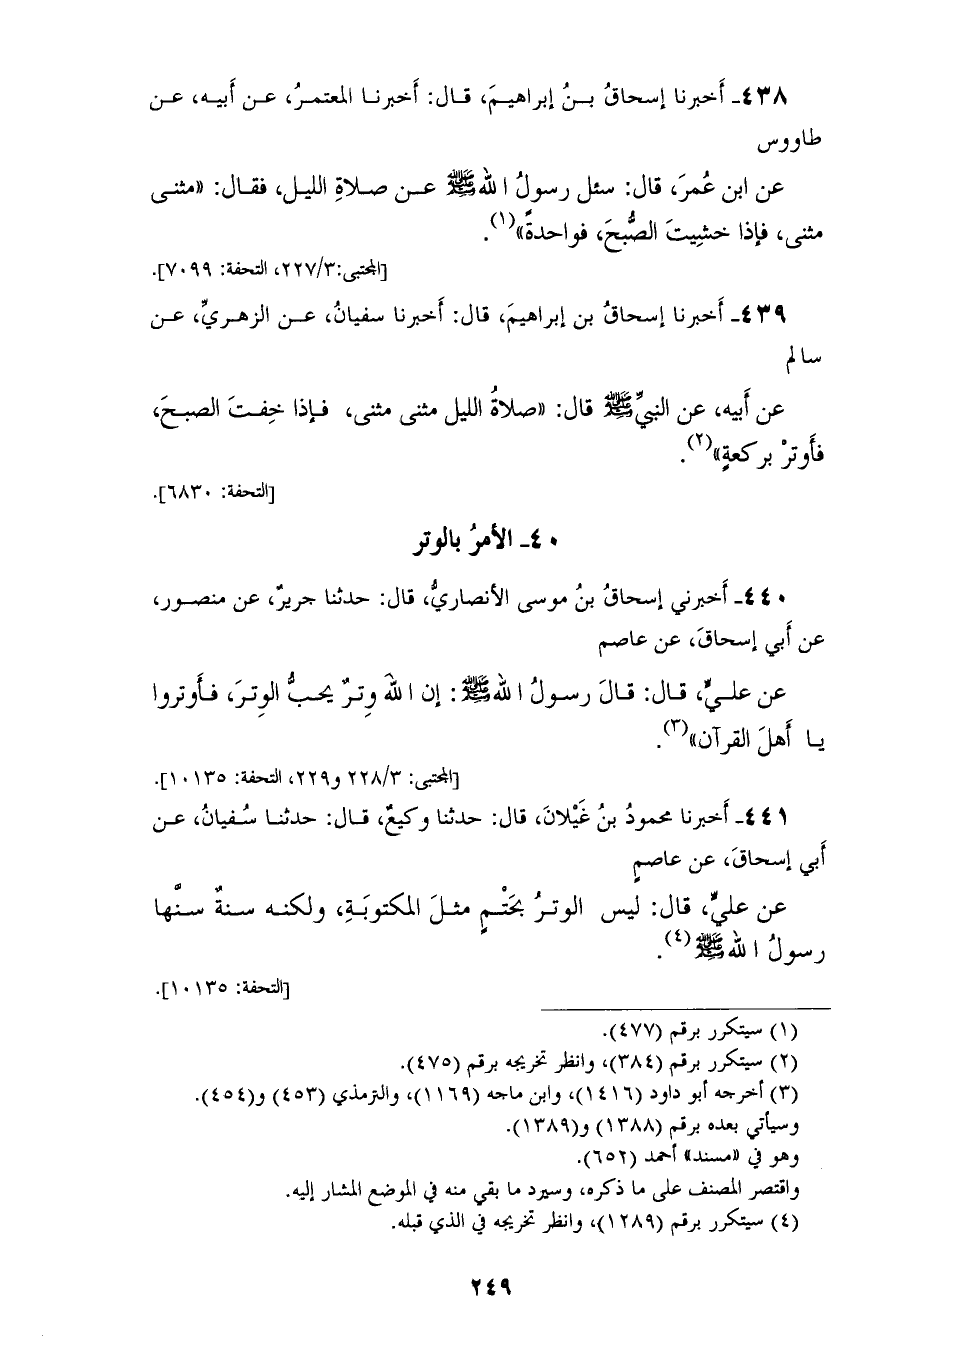 ٤٣٨ـ أَخبرنا إسحاقُ بـنُ إبراهيـمَ، قـال: أَخبرنـا المعتمـرُ، عـن أَبيـه، عـن
طاووس
عن ابن عُمرَ، قال: سئل رسولُ اللهﷺ عـن صـلاةِ الليـل، فقـال: «مثنـى
مثنى، فإذا خشِيتَ الصُّبحَ، فواحدةً»(١).
[المجتبى:٢٢٧/٣، التحفة: ٧٠٩٩].
٤٣٩ـ أَخبرنا إسحاقُ بن إبراهيمَ، قال: أَخبرنا سفيانُ، عـن الزهـريِّ، عـن
سالم
عن أَبيه، عن النبيِّﷺ قال: «صلاةُ الليل مثنى مثنى، فـإذا خِفـتَ الصبـحَ،
فأَوترْ بركعةٍ»(٢).
[التحفة: ٦٨٣٠].
٤٠ـ الأمرُ بالوتر
٤٤٠ـ أَخبرني إسحاقُ بنُ موسى الأنصاريُّ، قال: حدثنا جريرٌ، عن منصـور،
عن أَبي إسحاقَ، عن عاصم
عن علـيٍّ، قـال: قـالَ رسـولُ اللهﷺ: إن اللهَ وِترٌ يحـبُّ الوِترَ، فـأَوتروا
يـا أَهلَ القرآن»(٣).
[المجتبى: ٢٢٨/٣ و٢٢٩، التحفة: ١٠١٣٥].
٤٤١ـ أَخبرنا محمودُ بنُ غَيْلانَ، قال: حدثنا وكيعٌ، قـال: حدثنـا سُـفيانُ، عـن
أَبي إسحاقَ، عن عاصمٍ
عن عليٍّ، قال: ليس الوترُ بحَتْـمٍ مثـلَ المكتوبَـةِ، ولكنـه سـنةٌ سـنَّها
رسولُ اللهﷺ(٤).
[التحفة: ١٠١٣٥].
(١) سيتكرر برقم (٤٧٧).
(٢) سيتكرر برقم (٣٨٤)، وانظر تخريجه برقم (٤٧٥).
(٣) أخرجه أبو داود (١٤١٦)، وابن ماجه (١١٦٩)، والترمذي (٤٥٣) و(٤٥٤).
وسيأتي بعده برقم (١٣٨٨) و(١٣٨٩).
وهو في «مسند» أحمد (٦٥٢).
واقتصر المصنف على ما ذكره، وسيرد ما بقي منه في الموضع المشار إليه.
(٤) سيتكرر برقم (١٢٨٩)، وانظر تخريجه في الذي قبله.
٢٤٩